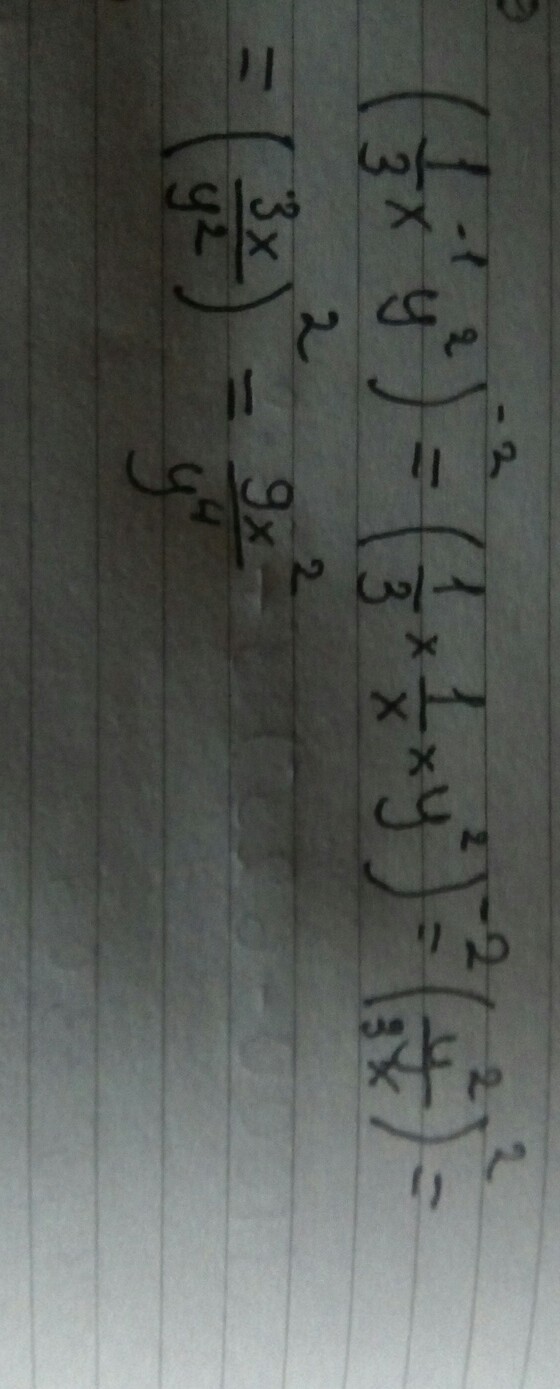 (1/3 x⁻¹ y²)⁻² = (1/3 × 1/x × y²)⁻² = (y²/3x)² =
= (3x/y²)² = 9x²/y⁴